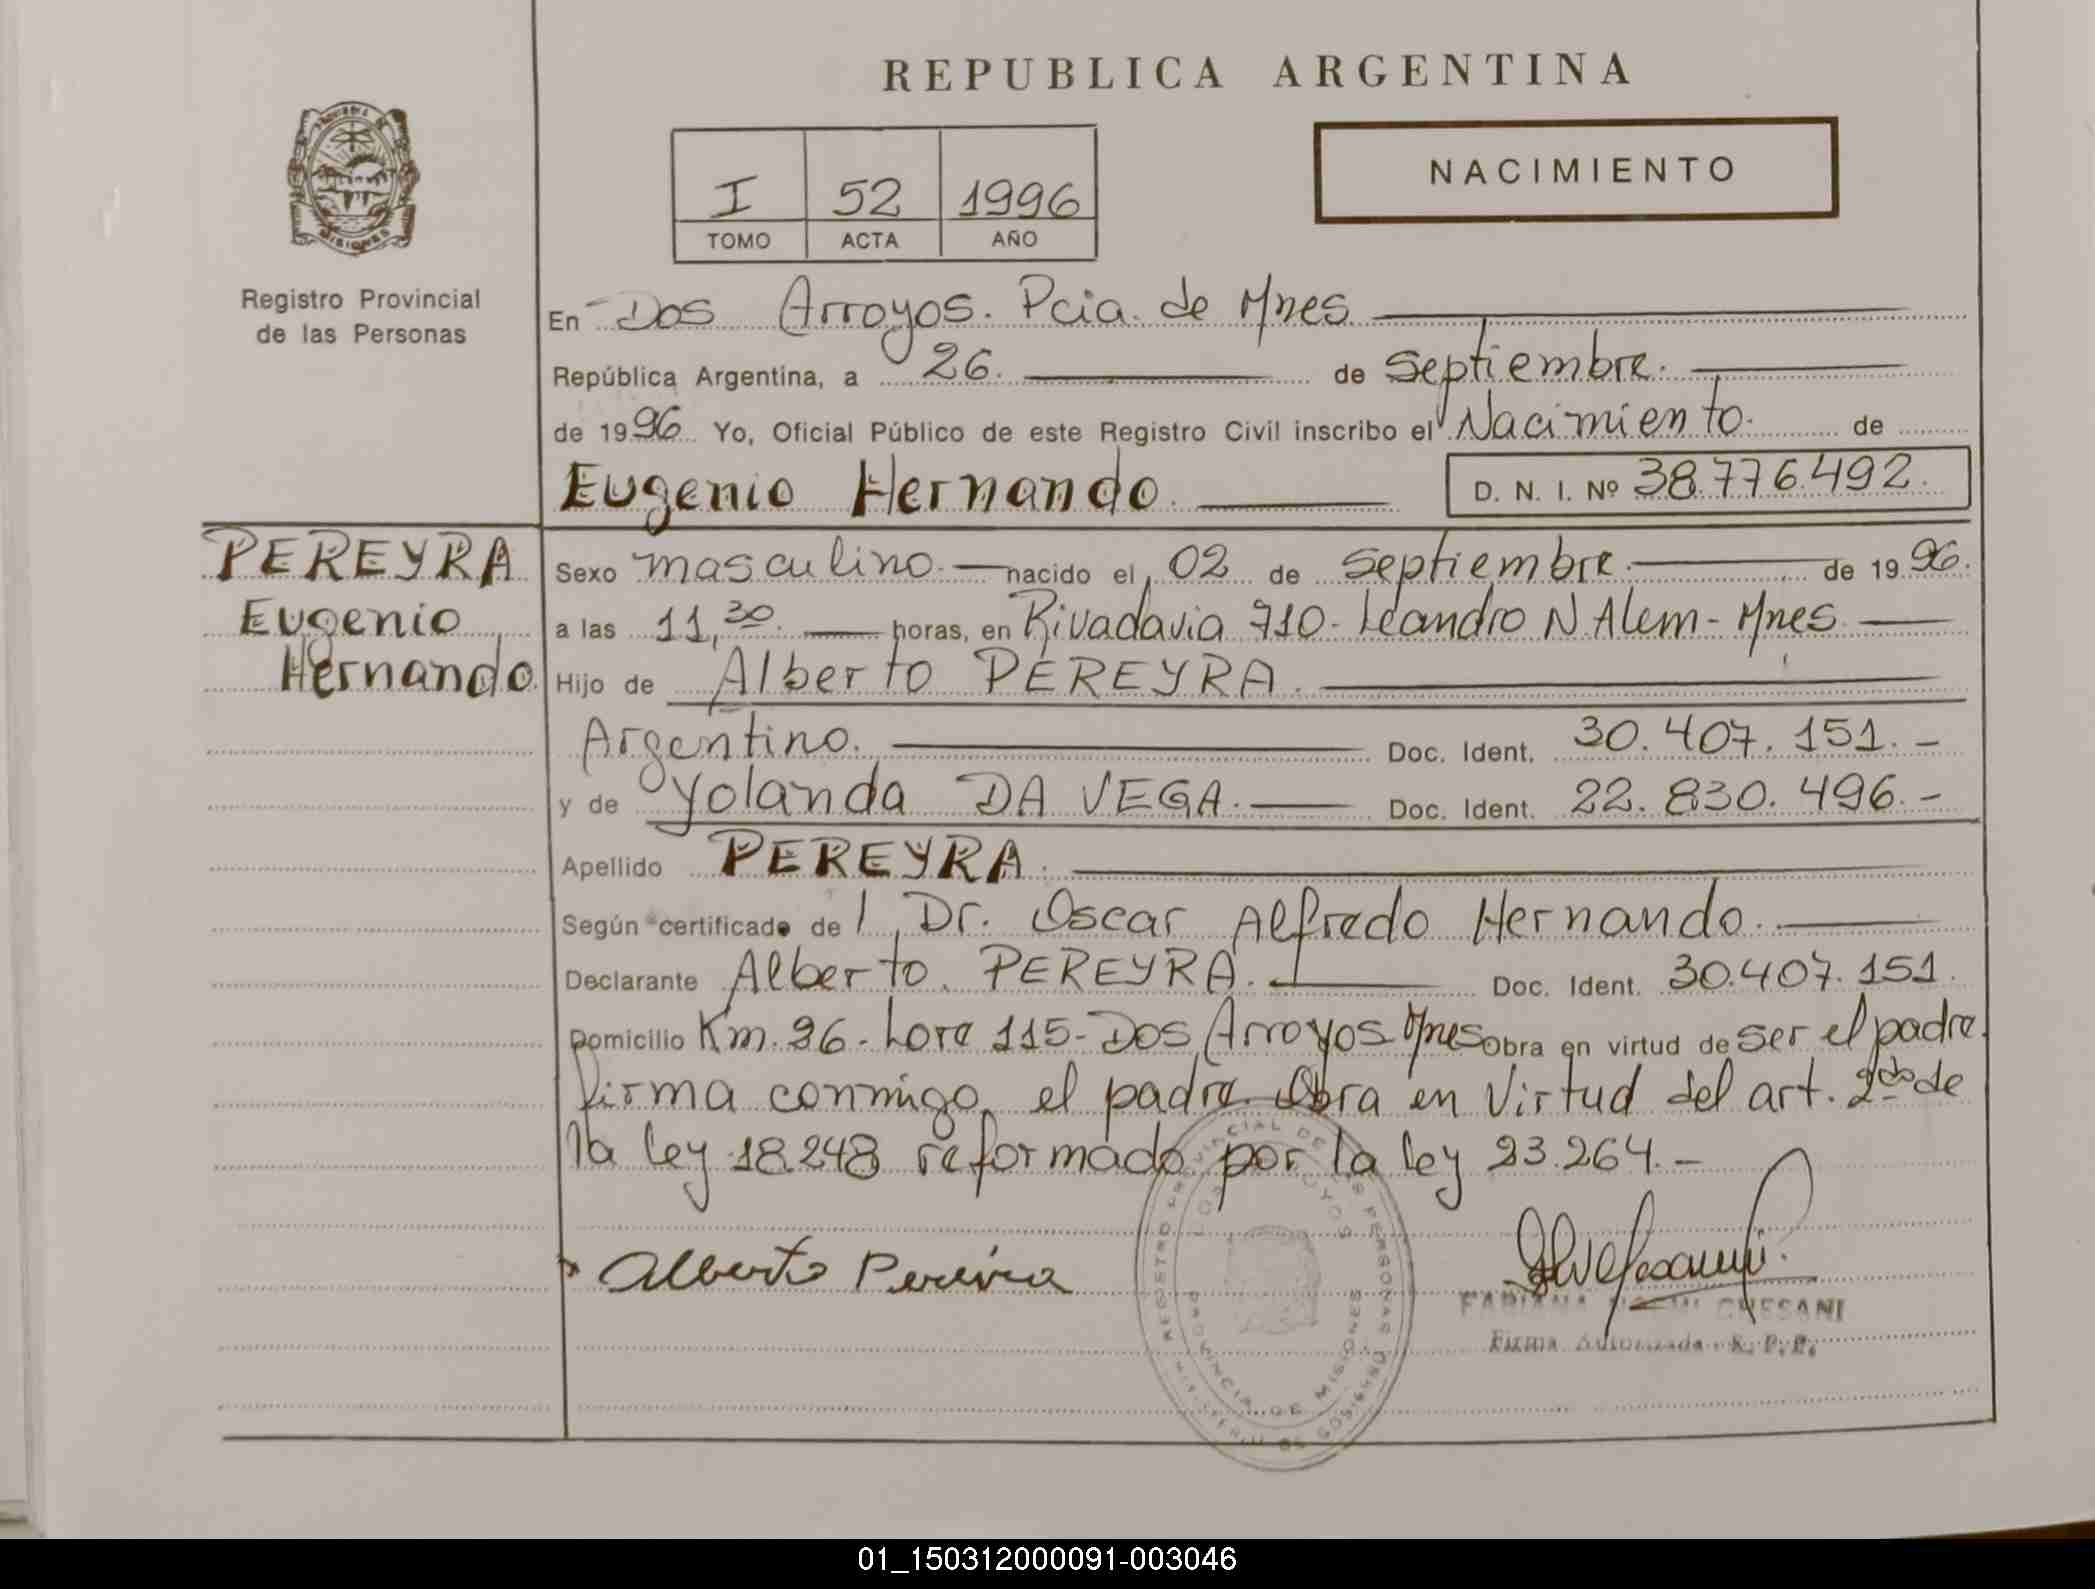 REPUBLICA ARGENTINA
NACIMIENTO
I 52 1996
TOMO ACTA AÑO
MISIONES
Registro Provincial
de las Personas
En Dos Arroyos. Pcia. de Mnes
República Argentina, a 26. de Septiembre.
de 1996 Yo, Oficial Público de este Registro Civil inscribo el Nacimiento. de
Eugenio Hernando. D. N. I. Nº 38.776.492.
PEREYRA
Eugenio
Hernando.
Sexo masculino. nacido el 02 de Septiembre. de 1996.
a las 11,30. horas, en Rivadavia 710- Leandro N Alem- Mnes
Hijo de Alberto PEREYRA.
Argentino. Doc. Ident. 30.407.151.-
y de Yolanda DA VEGA. Doc. Ident. 22.830.496.-
Apellido PEREYRA.
Según certificado de l Dr. Oscar Alfredo Hernando.
Declarante Alberto PEREYRA. Doc. Ident. 30.407.151.
Domicilio Km. 26- Lote 115- Dos Arroyos Mnes Obra en virtud de ser el padre.
firma conmigo el padre. Obra en Virtud del art. 2do de
la ley 18.248 reformado por la ley 23.264.-
Alberto Pereira
REGISTRO PROVINCIAL DE LAS PERSONAS
DOS ARROYOS
PROVINCIA DE MISIONES
MINISTERIO DE GOBIERNO
FABIANA CHESANI
Firma Autorizada R. P. P.
01_150312000091-003046